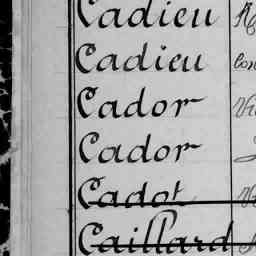 Cadieu
Cadieu
Cador
Cador
Cadot
Caillard